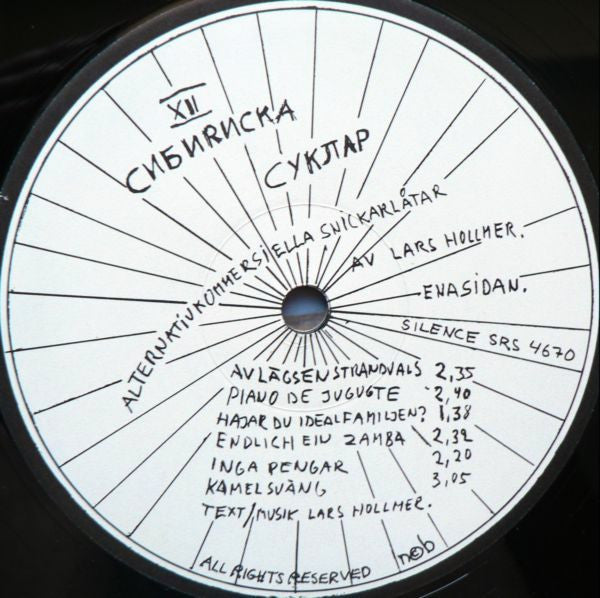 XII
СИБИЯИСКА
СУКЛАР
ALTERNATIVKOMMERSIELLA SNICKARLÅTAR
AV LARS HOLLMER.
ENASIDAN.
SILENCE SRS 4670
AVLÄGSEN STRANDVALS 2,35
PIANO DE JUGUGTE 2,40
HAJAR DU IDEALFAMILJEN? 1,38
ENDLICH EIN ZAMBA 2,32
INGA PENGAR 2,20
KAMELSVÄNG 3,05
TEXT/MUSIK LARS HOLLMER.
ALL RIGHTS RESERVED
ncb